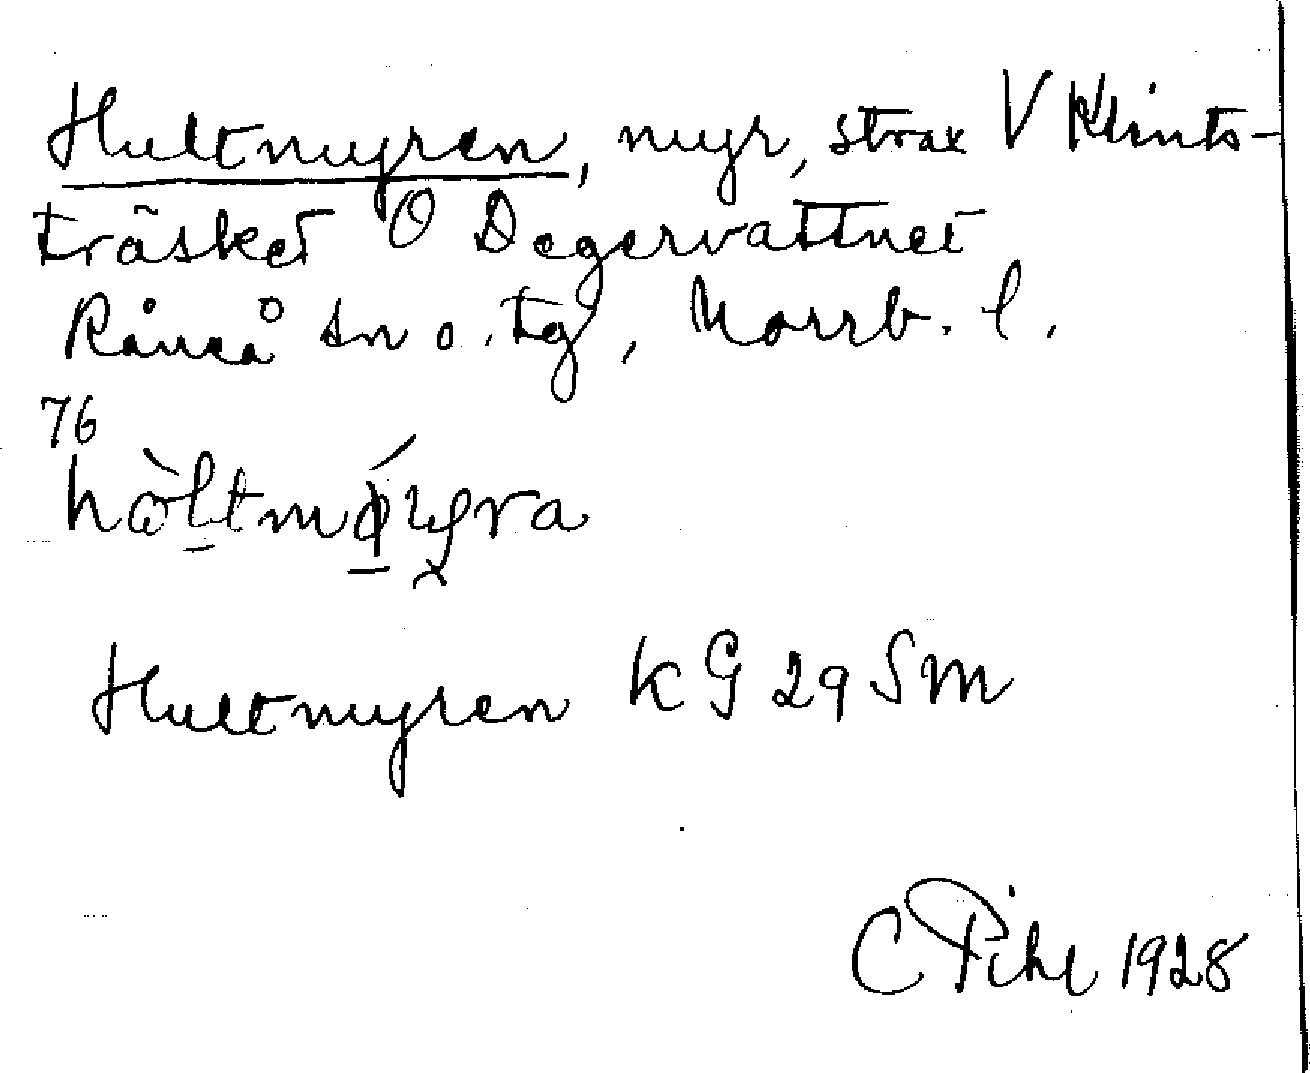 Hultmyren, myr, strax V Klints-
träsket O Degervattnet
Råneå sn o. tg, Norrb. l.
76
Hultmyren KG 29 SM
C Pihl 1928